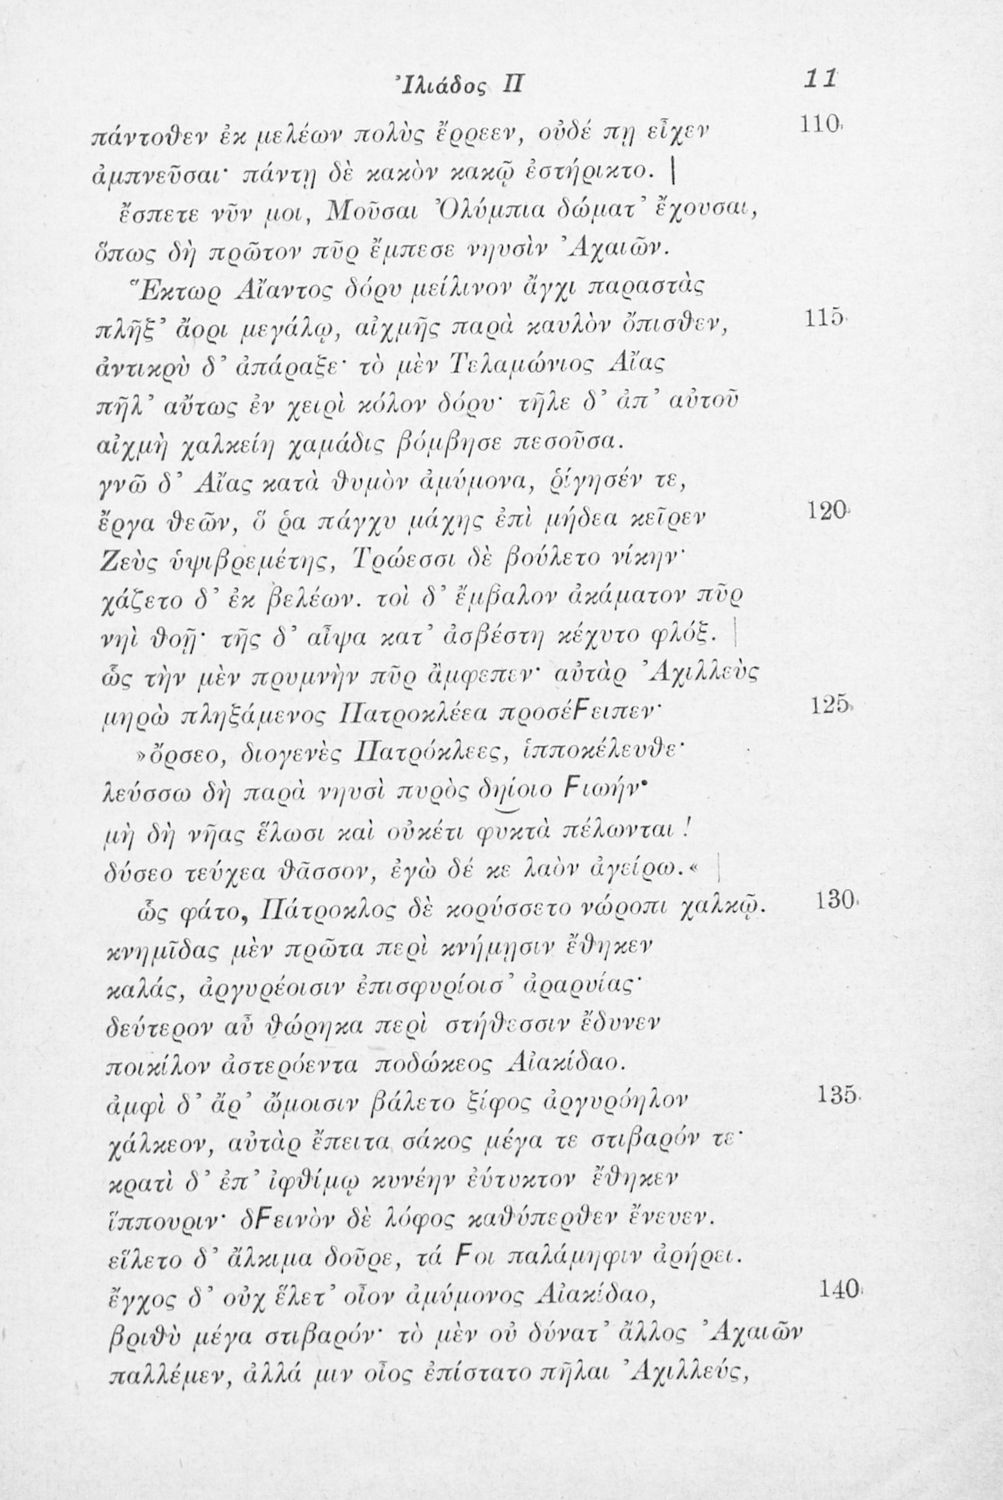 Ἰλιάδος Π 11
πάντοθεν ἐκ μελέων πολὺς ἔρρεεν, οὐδέ πῃ εἶχεν 110
ἀμπνεῦσαι· πάντῃ δὲ κακὸν κακῷ ἐστήρικτο. |
ἔσπετε νῦν μοι, Μοῦσαι Ὀλύμπια δώματ’ ἔχουσαι,
ὅπως δὴ πρῶτον πῦρ ἔμπεσε νηυσὶν Ἀχαιῶν.
Ἕκτωρ Αἴαντος δόρυ μείλινον ἄγχι παραστὰς
πλῆξ’ ἄορι μεγάλῳ, αἰχμῆς παρὰ καυλὸν ὄπισθεν, 115
ἀντικρὺ δ’ ἀπάραξε· τὸ μὲν Τελαμώνιος Αἴας
πῆλ’ αὔτως ἐν χειρὶ κόλον δόρυ· τῆλε δ’ ἀπ’ αὐτοῦ
αἰχμὴ χαλκείη χαμάδις βόμβησε πεσοῦσα.
γνῶ δ’ Αἴας κατὰ θυμὸν ἀμύμονα, ῥίγησέν τε,
ἔργα θεῶν, ὅ ῥα πάγχυ μάχης ἐπὶ μήδεα κεῖρεν 120
Ζεὺς ὑψιβρεμέτης, Τρώεσσι δὲ βούλετο νίκην·
χάζετο δ’ ἐκ βελέων. τοὶ δ’ ἔμβαλον ἀκάματον πῦρ
νηὶ θοῇ· τῆς δ’ αἶψα κατ’ ἀσβέστη κέχυτο φλόξ. |
ὣς τὴν μὲν πρυμνὴν πῦρ ἄμφεπεν· αὐτὰρ Ἀχιλλεὺς
μηρὼ πληξάμενος Πατροκλέεα προσέϜειπεν· 125
»ὄρσεο, διογενὲς Πατρόκλεες, ἱπποκέλευθε·
λεύσσω δὴ παρὰ νηυσὶ πυρὸς δηίοιο Ϝιωήν·
μὴ δὴ νῆας ἕλωσι καὶ οὐκέτι φυκτὰ πέλωνται !
δύσεο τεύχεα θᾶσσον, ἐγὼ δέ κε λαὸν ἀγείρω.« |
ὣς φάτο, Πάτροκλος δὲ κορύσσετο νώροπι χαλκῷ. 130
κνημῖδας μὲν πρῶτα περὶ κνήμῃσιν ἔθηκεν
καλάς, ἀργυρέοισιν ἐπισφυρίοισ’ ἀραρυίας·
δεύτερον αὖ θώρηκα περὶ στήθεσσιν ἔδυνεν
ποικίλον ἀστερόεντα ποδώκεος Αἰακίδαο.
ἀμφὶ δ’ ἄρ’ ὤμοισιν βάλετο ξίφος ἀργυρόηλον 135
χάλκεον, αὐτὰρ ἔπειτα σάκος μέγα τε στιβαρόν τε·
κρατὶ δ’ ἐπ’ ἰφθίμῳ κυνέην ἐύτυκτον ἔθηκεν
ἵππουριν· δϜεινὸν δὲ λόφος καθύπερθεν ἔνευεν.
εἵλετο δ’ ἄλκιμα δοῦρε, τά Ϝοι παλάμηφιν ἀρήρει.
ἔγχος δ’ οὐχ ἕλετ’ οἶον ἀμύμονος Αἰακίδαο, 140
βριθὺ μέγα στιβαρόν· τὸ μὲν οὐ δύνατ’ ἄλλος Ἀχαιῶν
παλλέμεν, ἀλλά μιν οἶος ἐπίστατο πῆλαι Ἀχιλλεύς,